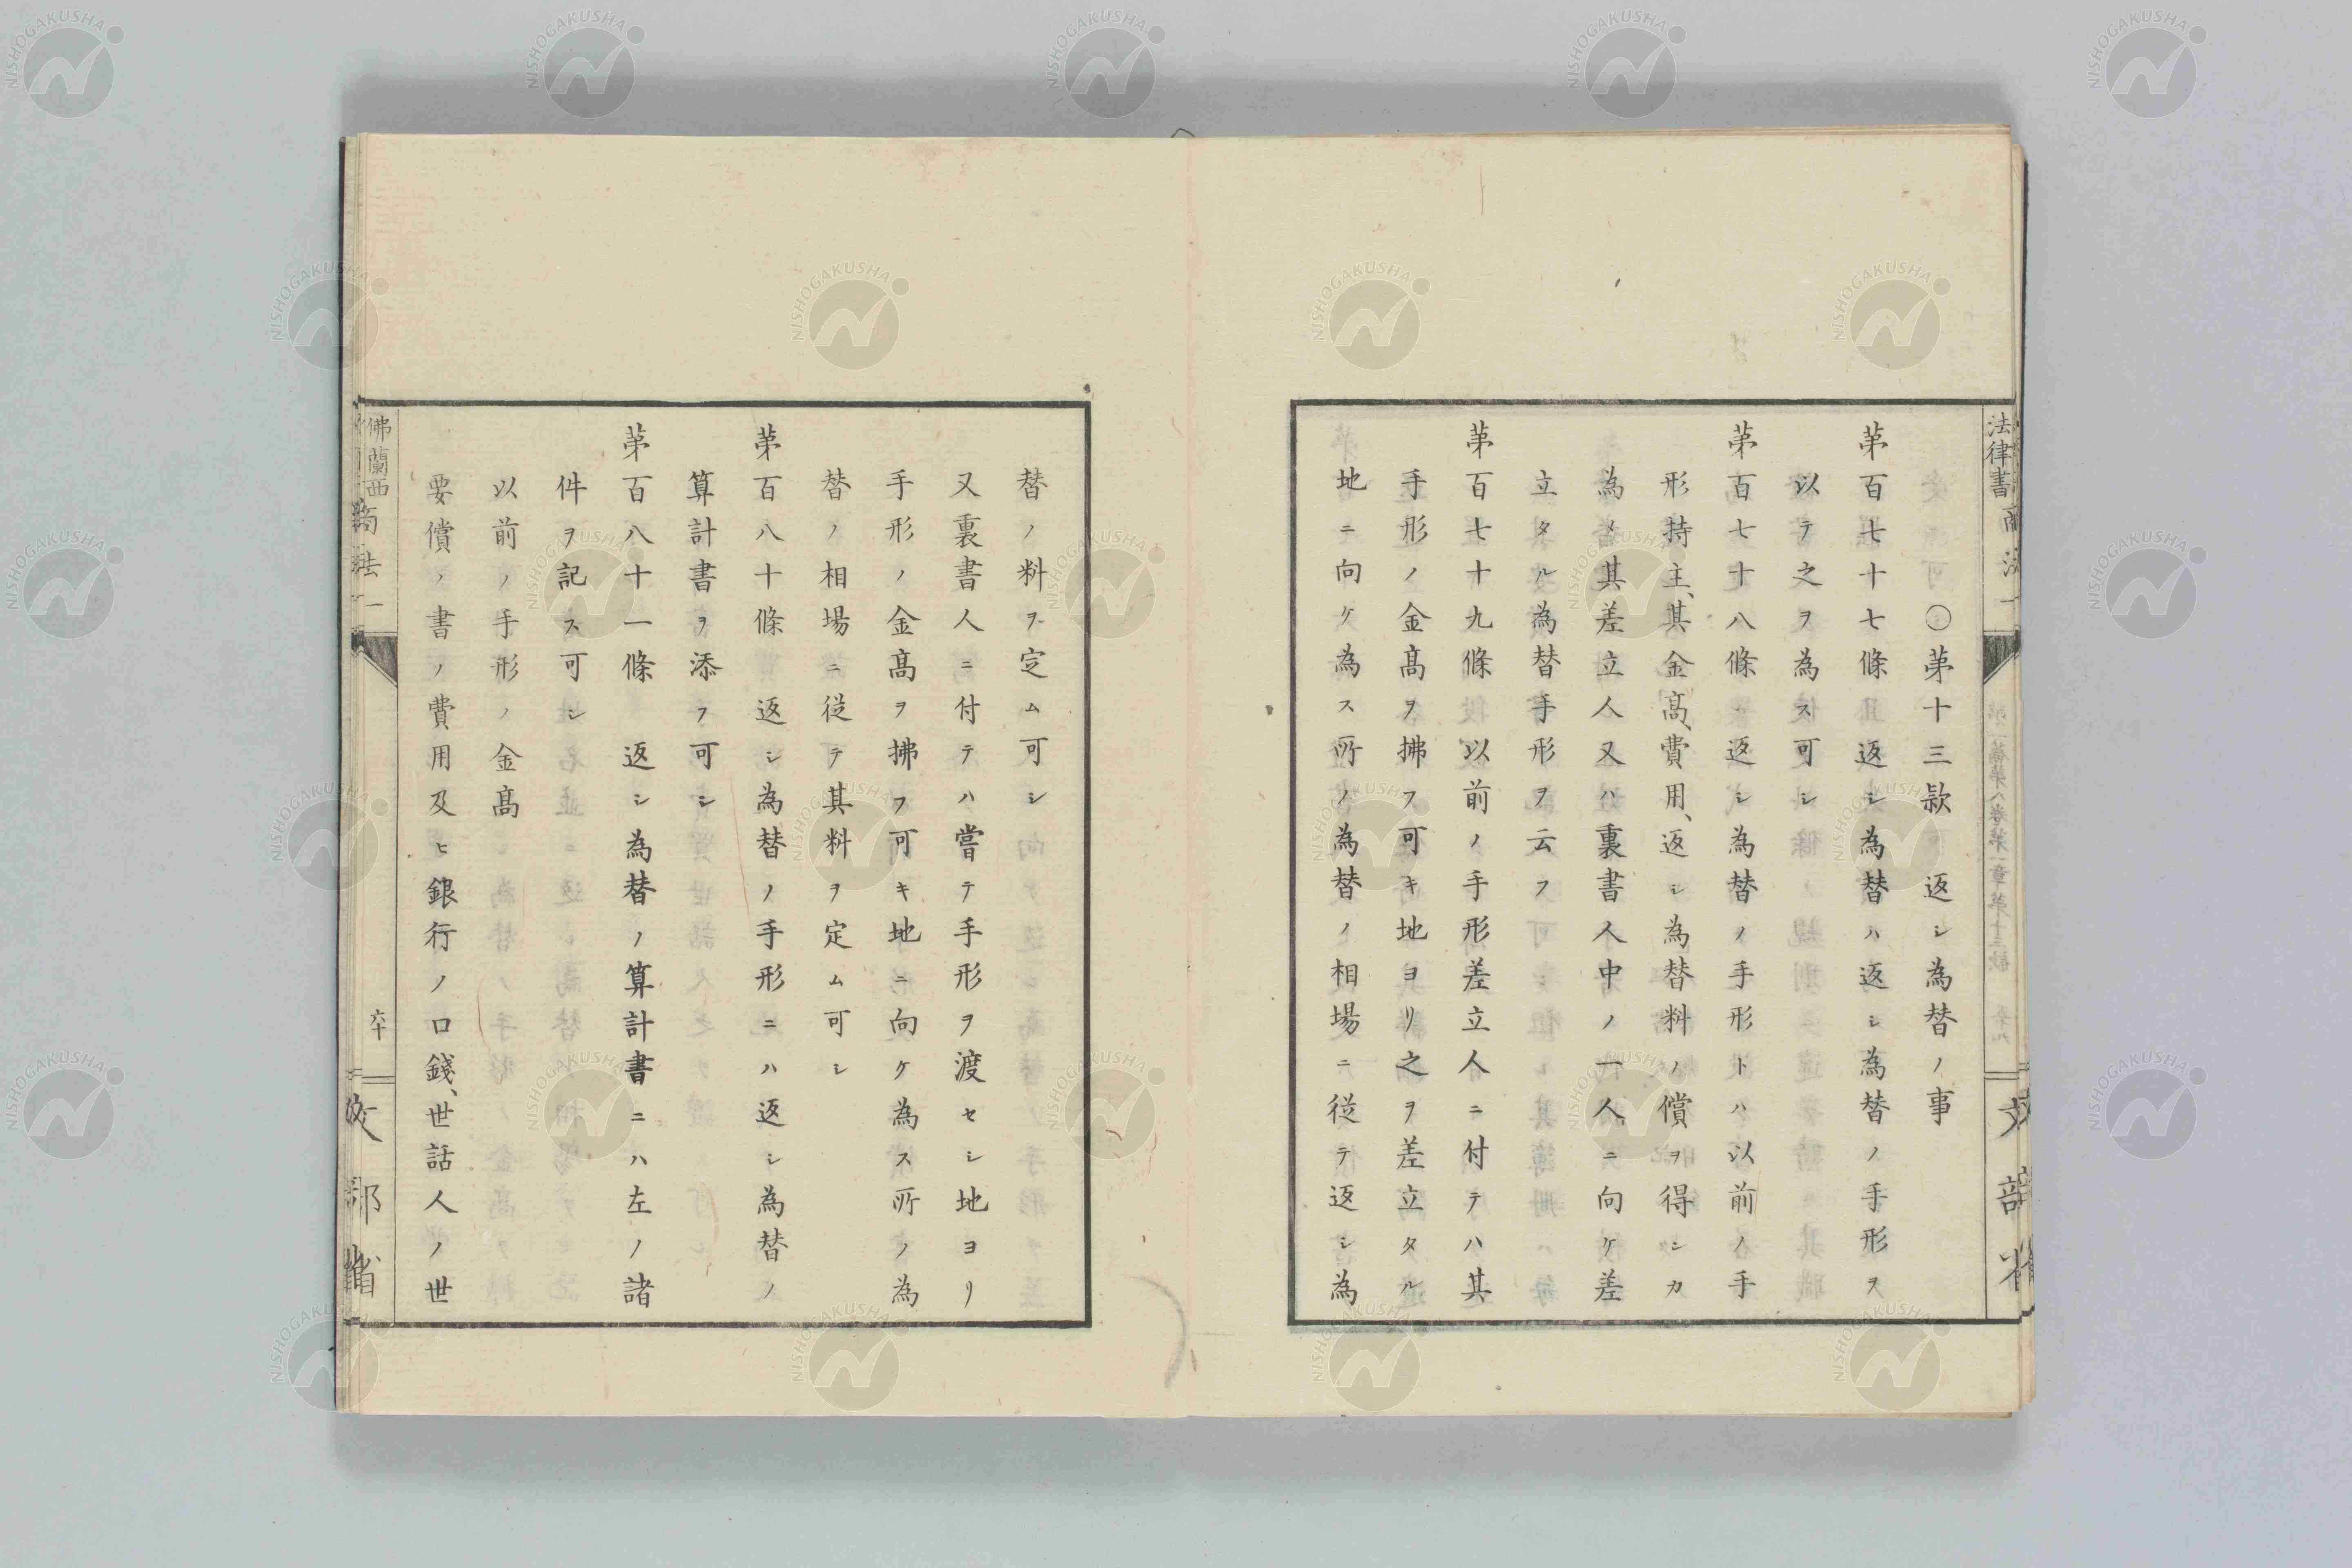 法律書 商法 一
○第十三款 返シ為替ノ事
第百七十七條 返シ為替ハ返シ為替ノ手形ヲ
以テ之ヲ為ス可シ
第百七十八條 返シ為替ノ手形トハ以前ノ手
形持主、其金高、費用、返シ為替料ノ償ヲ得ンカ
為メ其差立人又ハ裏書人中ノ一人ニ向ケ差
立タル為替手形ヲ云フ
第百七十九條 以前ノ手形差立人ニ付テハ其
手形ノ金高ヲ拂フ可キ地ヨリ之ヲ差立タル
地ニ向ケ為ス所ノ為替ノ相場ニ従テ返シ為
文部省
替ノ料ヲ定ム可シ
又裏書人ニ付テハ嘗テ手形ヲ渡セシ地ヨリ
手形ノ金高ヲ拂フ可キ地ニ向ケ為ス所ノ為
替ノ相場ニ従テ其料ヲ定ム可シ
第百八十條 返シ為替ノ手形ニハ返シ為替ノ
算計書ヲ添フ可シ
第百八十一條 返シ為替ノ算計書ニハ左ノ諸
件ヲ記ス可シ
以前ノ手形ノ金高
要償ノ書ノ費用及ヒ銀行ノ口錢、世話人ノ世
佛蘭西商法 一
六十
文部省
NISHOGAKUSHA